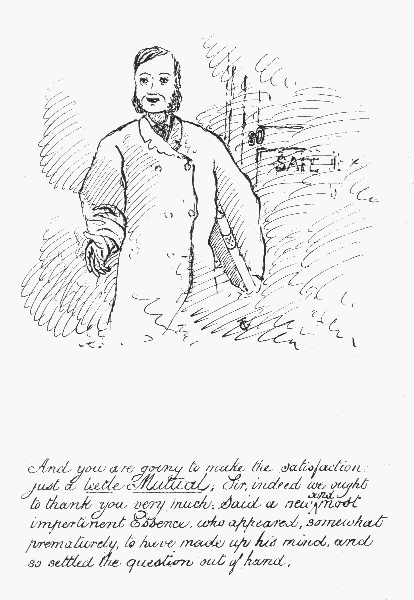 SAFE
And you are going to make the satisfaction
just a little Mutual; Sir, indeed we ought
to thank you very much. Said a new and most
impertinent Essence, who appeared, somewhat
prematurely, to have made up his mind, and
so settled the question out of hand.